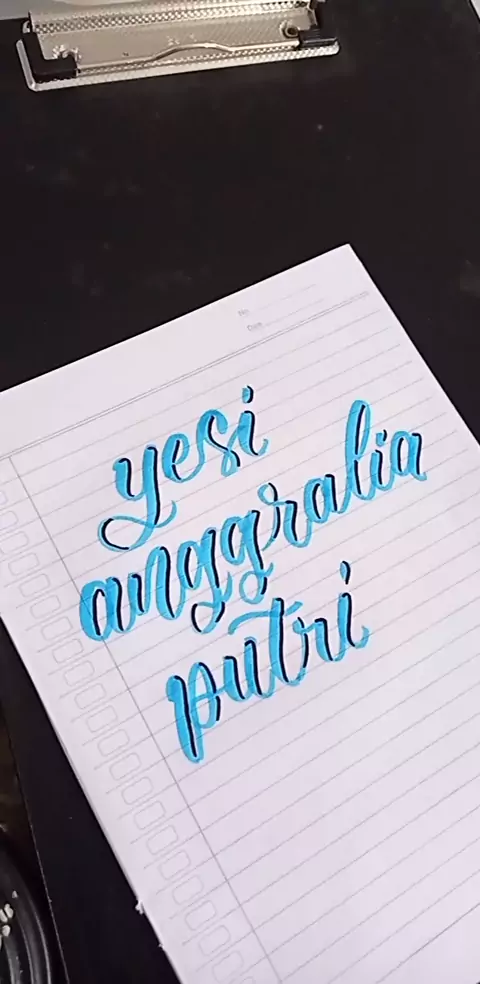 No.
Date
yesi
anggralia
putri